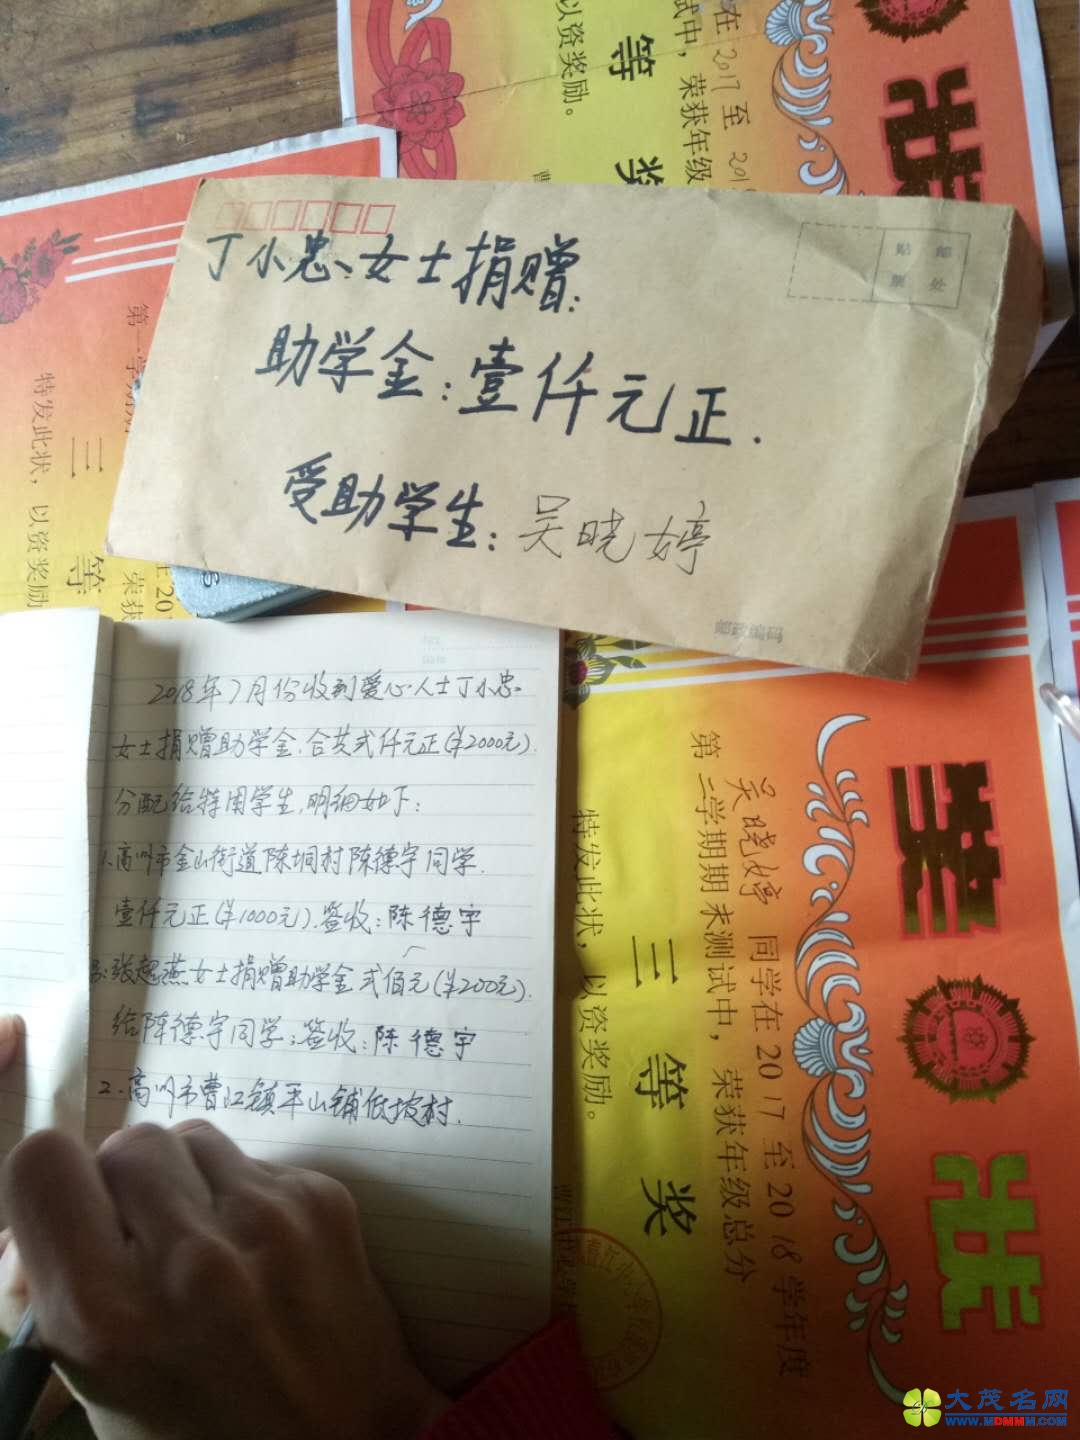 在2017至
试中，荣获年级
以资奖励。
等
奖
状
丁小忠、女士捐赠:
助学金:壹仟元正.
受助学生:吴晓婷
贴 邮
票 处
邮政编码
第一学期
特发此状，以资奖励
三
等
荣获
2018年7月份收到爱心人士丁小忠
女士捐赠助学金.合共弍仟元正(¥2000元).
分配给特困学生,明细如下:
1.高州市金山街道陈垌村陈德宇同学.
壹仟元正(¥1000元).签收:陈德宇
张超燕女士捐赠助学金弍佰元(¥200元).
给陈德宇同学;签收:陈德宇
2.高州市曹江镇平山铺低坡村.
奖状
吴晓婷 同学在2017至2018学年度
第二学期期末测试中，荣获年级总分
三等奖
特发此状，以资奖励。
大茂名网
WWW.MDMMM.COM